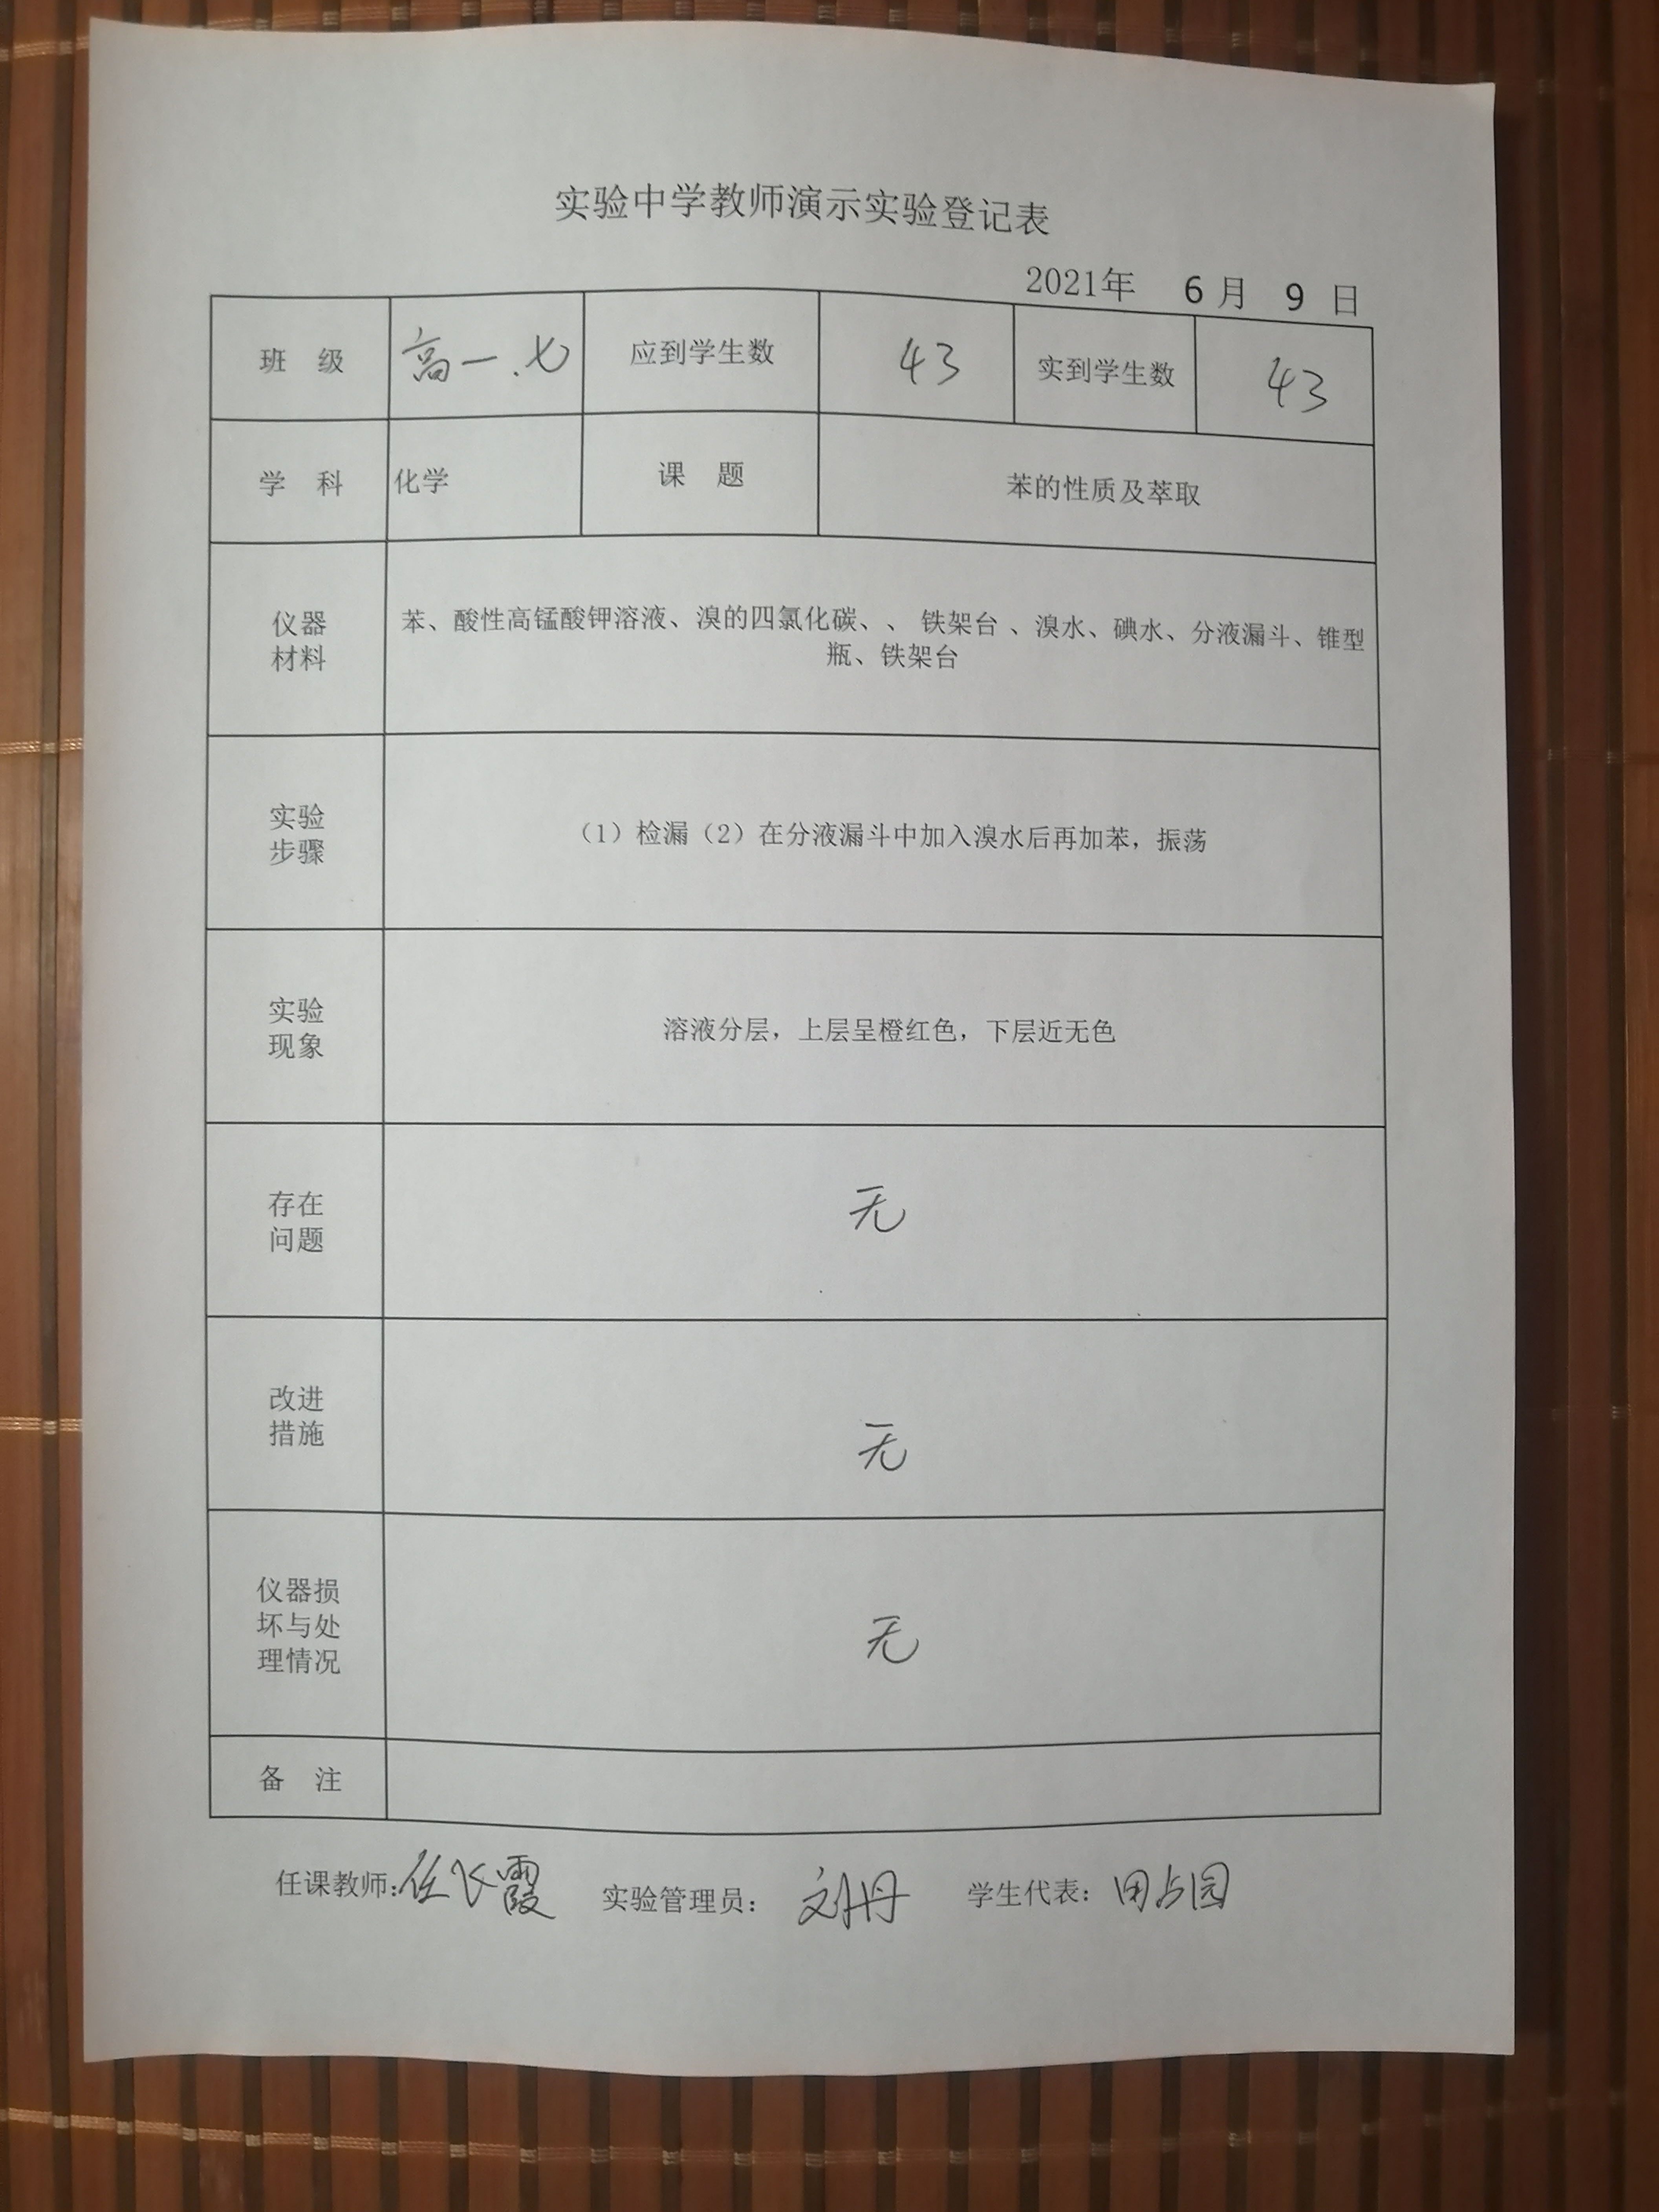 实验中学教师演示实验登记表
2021年 6 月 9 日
班 级 高一.七 应到学生数 43 实到学生数 43
学 科 化学 课 题 苯的性质及萃取
仪器
材料
苯、酸性高锰酸钾溶液、溴的四氯化碳、、 铁架台 、溴水、碘水、分液漏斗、锥型
瓶、铁架台
实验
步骤
（1）检漏（2）在分液漏斗中加入溴水后再加苯，振荡
实验
现象
溶液分层，上层呈橙红色，下层近无色
存在
问题
无
改进
措施
无
仪器损
坏与处
理情况
无
备 注
任课教师：任长霞 实验管理员： 刘丹 学生代表：田占园